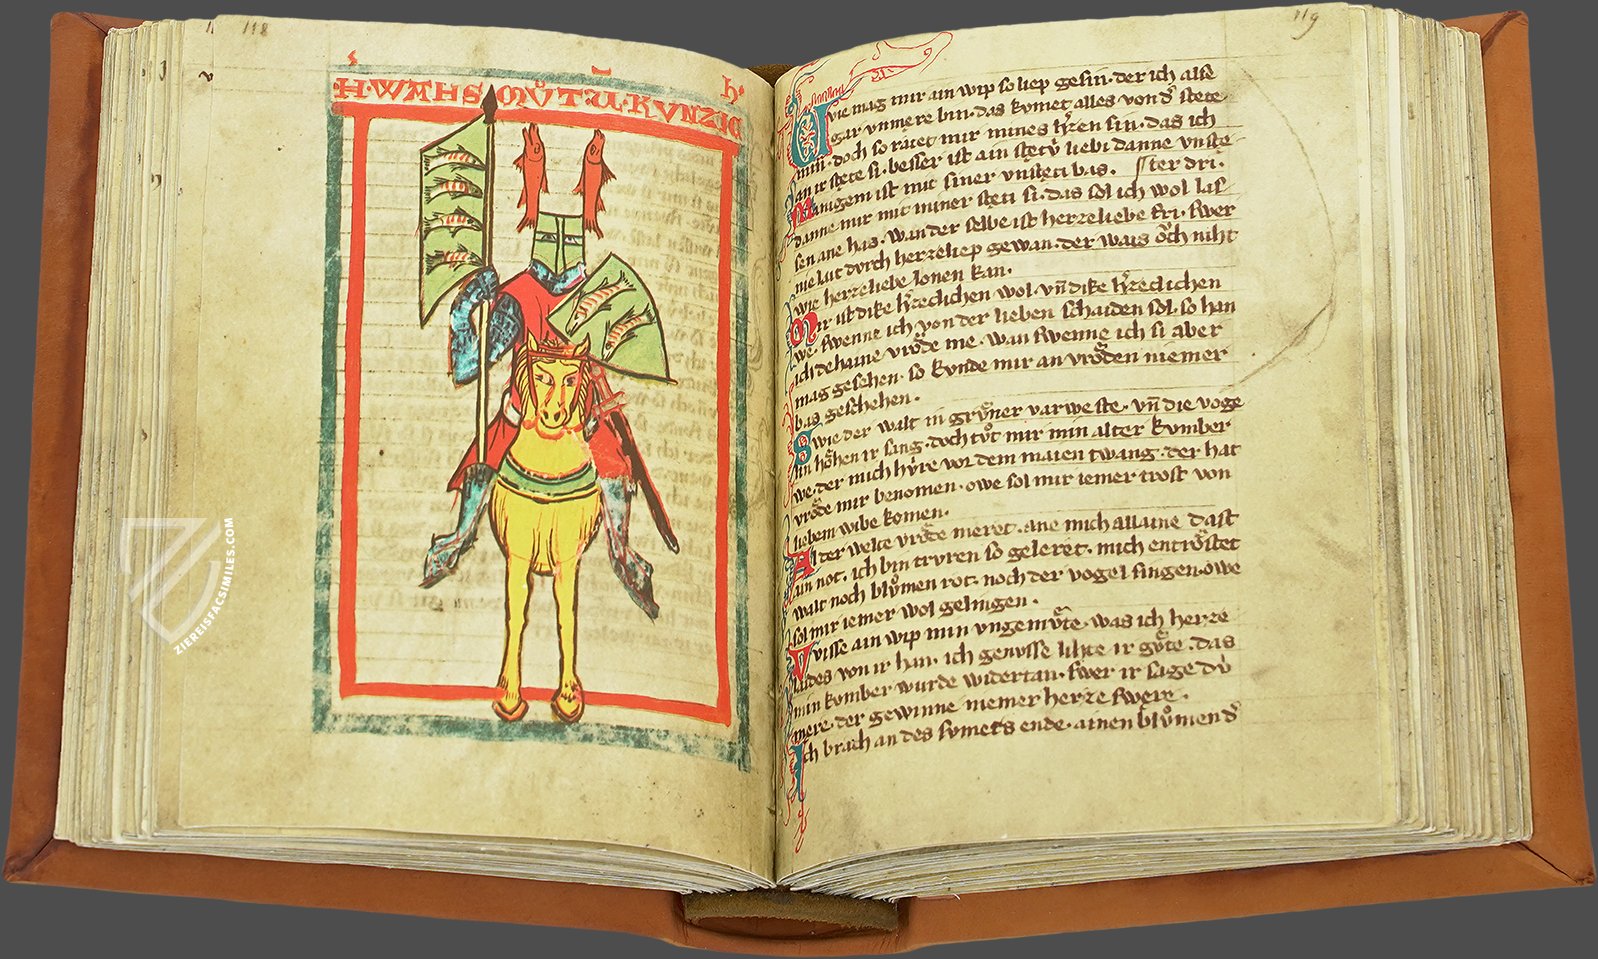 118
H·WAHSMŮT·U·KVNZIC
h·
119
Wie mag mir ain wip so liep gesin·der ich alse
gar vnmere bin·das kvmet alles von d̾ stete
min·doch so ratet mir mines h̾zen sin·das ich
an ir stete si·besser ist ain stetv̾ liebi danne vnste
Manigem ist mit siner vnsteti bas· ster dri·
danne mir mit miner steti si·das sol ich wol las
sen ane has·wan der selbe ist herzeliebe fri·swer
nie lait dvrch herzeliep gewan·der wais och niht
wie herzeliebe lonen kan·
Mir ist dike h̾zeclichen wol·vn̄ dike h̾zeclichen
we·swenne ich von der lieben schaiden sol·so han
ich dehaine vrŏde me·wan swenne ich si aber
mag gesehen·so kvnde mir an vrŏden niemer
bas geschehen·
Swie der walt in grv̊ner varwe ste·vn̄ die voge
lin hŏhen ir sang·doch tv̊t mir min alter kvmber
we·der mich hv̾re vor dem maien twang·der hat
vrŏde mir benomen·owe sol mir iemer trost von
liebem wibe komen·
Al der welte vrŏde meret·ane mich allaine dast
ain not·ich bin trvren so geleret·mich entrŏstet
walt noch blv̊men rot·noch der vogel singen·owe
sol mir iemer wol gelingen·
Wisse ain wip min vngemv̊te·was ich herze
laides von ir han·ich genvsse lihte ir gv̊te·das
min kvmber wurde widertan·swer ir sage dv̾
mere·der gewinne niemer herze swere·
Ich brach an des svmers ende·ainen blv̊men d̾
ZIEREISFACSIMILES.COM